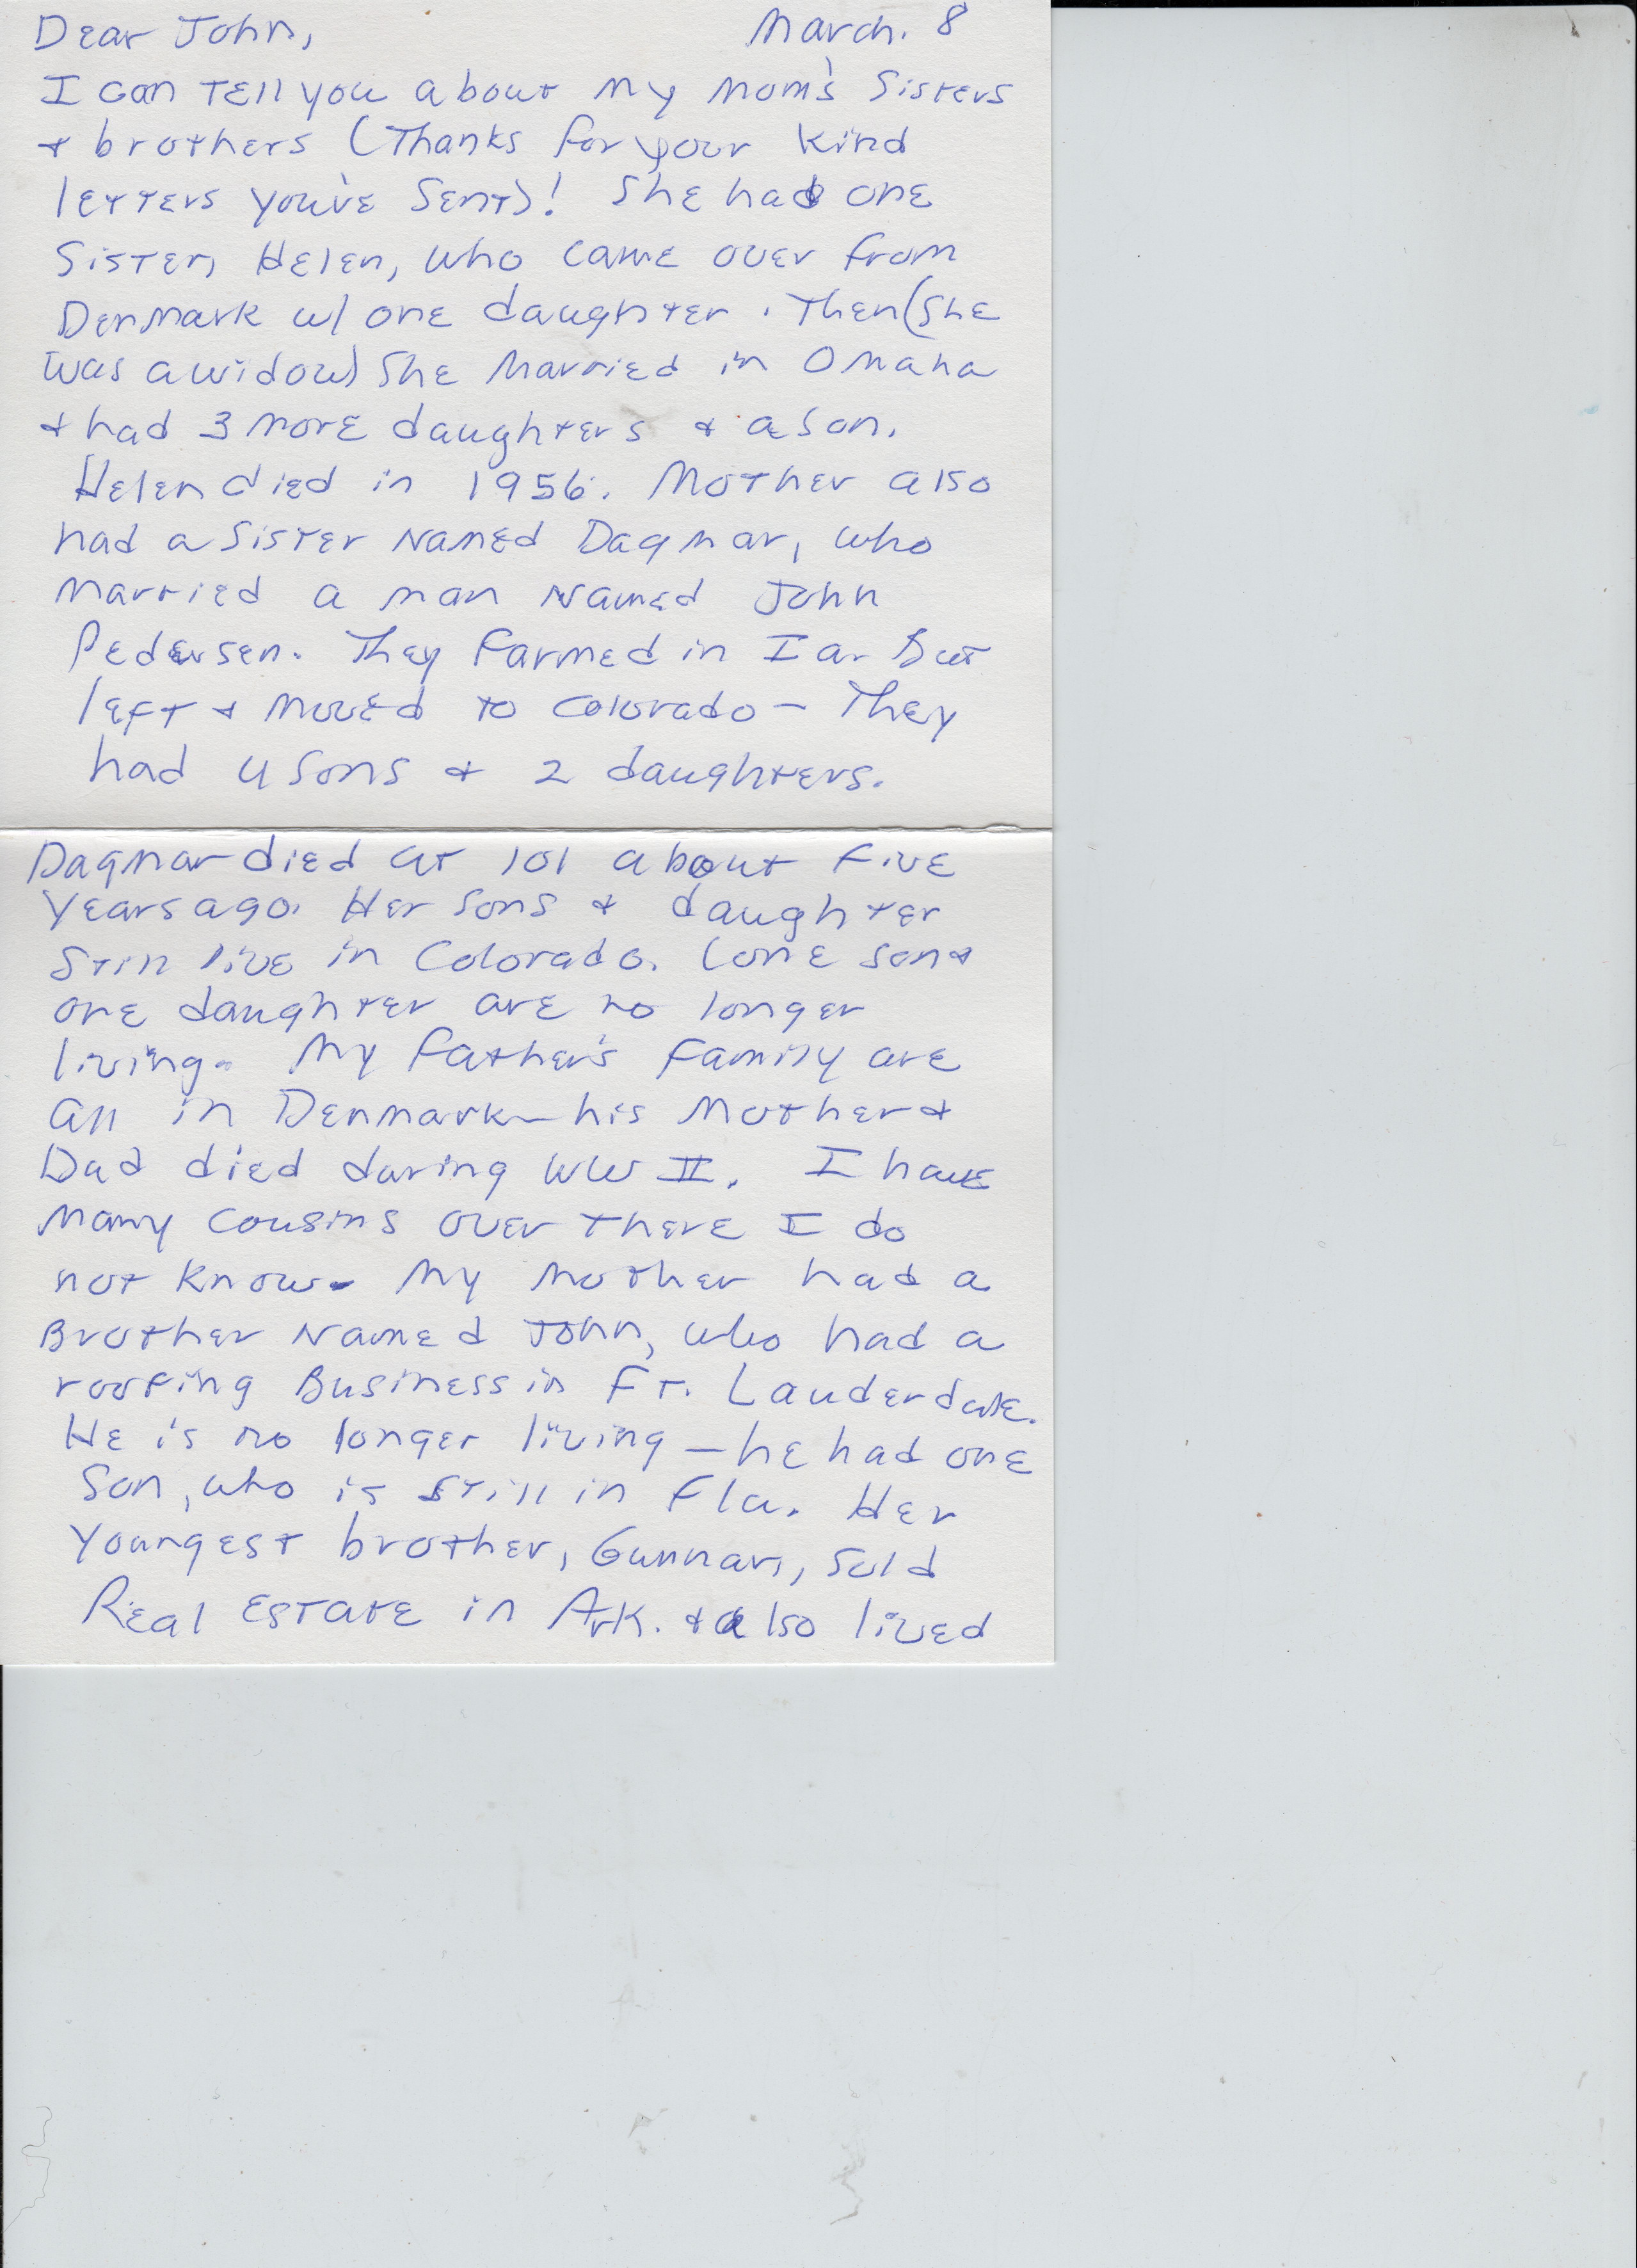 Dear John, March. 8
I can Tell you about my mom's Sisters
+ brothers (Thanks for your kind
letters you've Sent)! She had one
Sister, Helen, who came over from
Denmark w/ one daughter. Then (she
was a widow) She Married in Omaha
+ had 3 more daughters + a son.
Helen died in 1956. Mother also
had a Sister Named Dagmar, who
married a man Named John
Pedersen. They farmed in Ia. But
left + moved to Colorado - They
had 4 sons + 2 daughters.
Dagmar died at 101 about five
years ago. Her sons + daughter
still live in Colorado. (one son +
one daughter are no longer
living. My father's family are
all in Denmark - his Mother +
Dad died during WW II. I have
many cousins over there I do
not know. My mother had a
Brother Named John, who had a
roofing Business in Ft. Lauderdale.
He is no longer living - he had one
son, who is still in Fla. Her
youngest brother, Gunnar, sold
Real Estate in Ark. + also lived